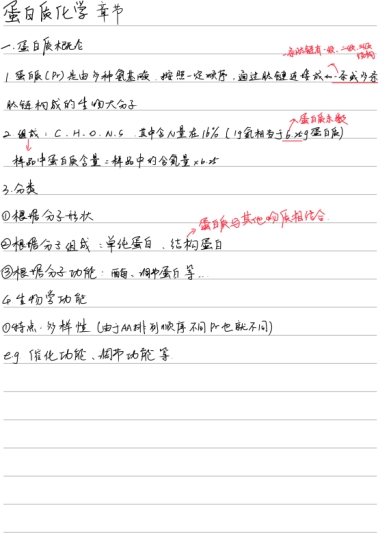 蛋白质化学 章节
一.蛋白质概念
一条肽链有一级、二级、三级结构
1.蛋白质(Pr)是由多种氨基酸 按照一定顺序,通过肽键连接成的一条或多条
肽链构成的生物大分子
蛋白质系数
2.组成:C.H.O.N.S 其中含N量在16% (1g氮相当于6.25g蛋白质)
样品中蛋白质含量=样品中的含氮量×6.25
3.分类
①根据分子形状
蛋白质与其他物质相结合.
②根据分子组成:单纯蛋白、结构蛋白
③根据分子功能:酶、调节蛋白等..
4.生物学功能
①特点.多样性(由于AA排列顺序不同Pr也就不同)
eg 催化功能、调节功能等.